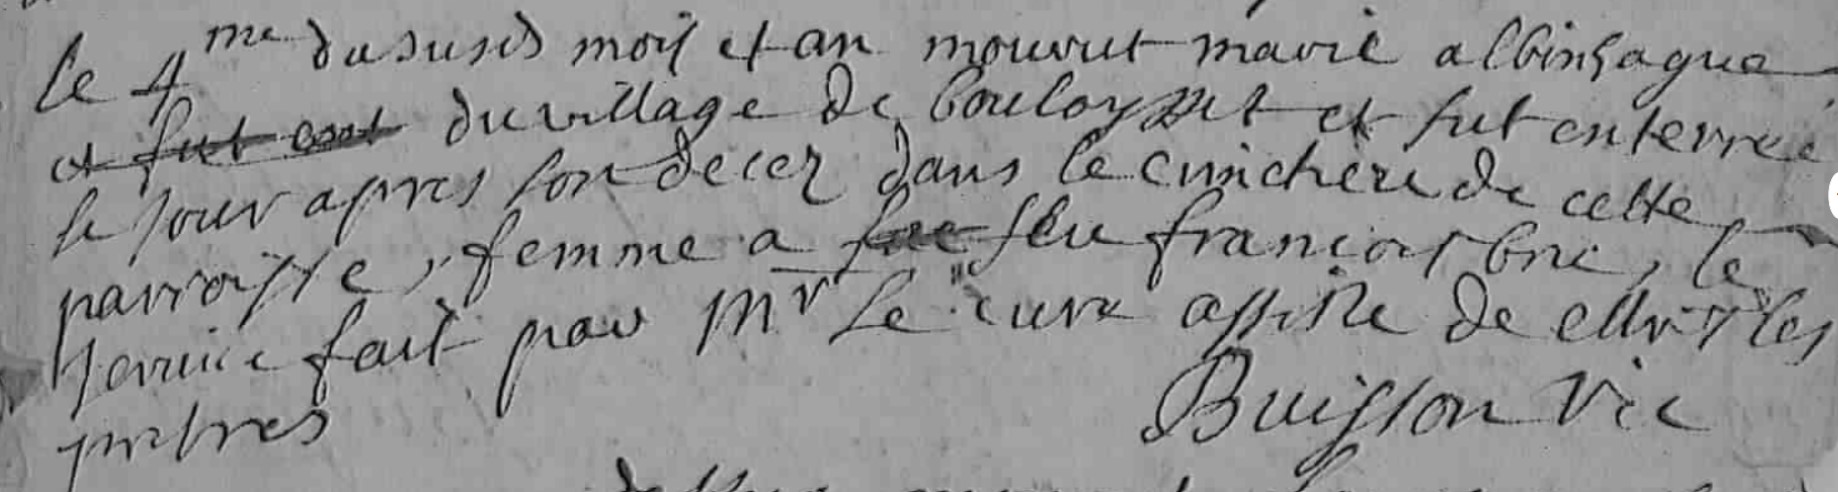 le 4me du susd mois et an mourut marie albinhague
et fut du village de bouloysset et fut enterree
le jour apres son decez dans le cimichere de cette
parroisse, femme a feu francois brie, le
service fait par mr le cure assiste de mrs les
pretres
Buisson vic